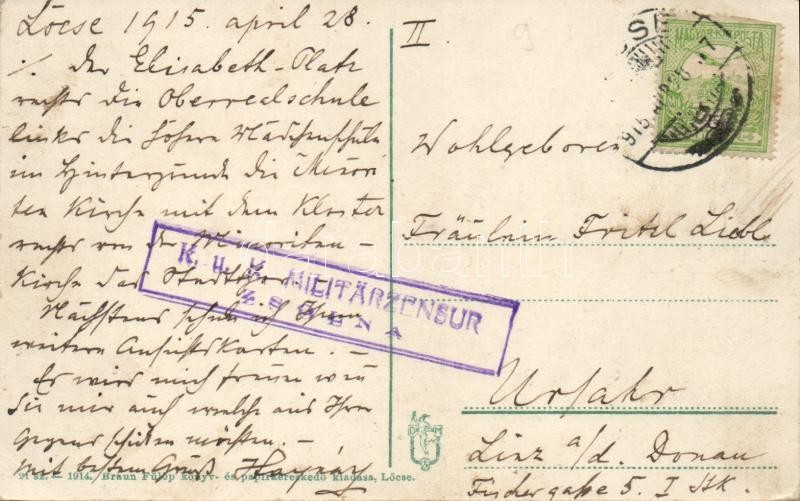 Löcse 1915. april 28.
·/. Der Elisabeth-Platz
rechts die Oberrealschule
links die höhere Mädchenschule
im Hintergrunde die Minori
ten Kirche mit dem Kloster
rechts von der Minoriten-
Kirche das Stadtthor.
Nächstens schicke ich Ihnen
weitere Ansichtskarten. —
Es wird mich freuen wenn
Sie mir auch welche aus Ihrer
Gegend schicken möchten. —
mit bestem Gruß
21 sz. — 1914. Braun Fülöp könyv- és papirkereskedő kiadása, Löcse.
K. u. K. MILITÄRZENSUR
ZSOLNA
II
9
MAGYAR KIR. POSTA
Wohlgeboren
Fräulein Fritzl Liebl
Urfahr
Linz a/d. Donau
Fischergasse 5. I Stk.
darabanth